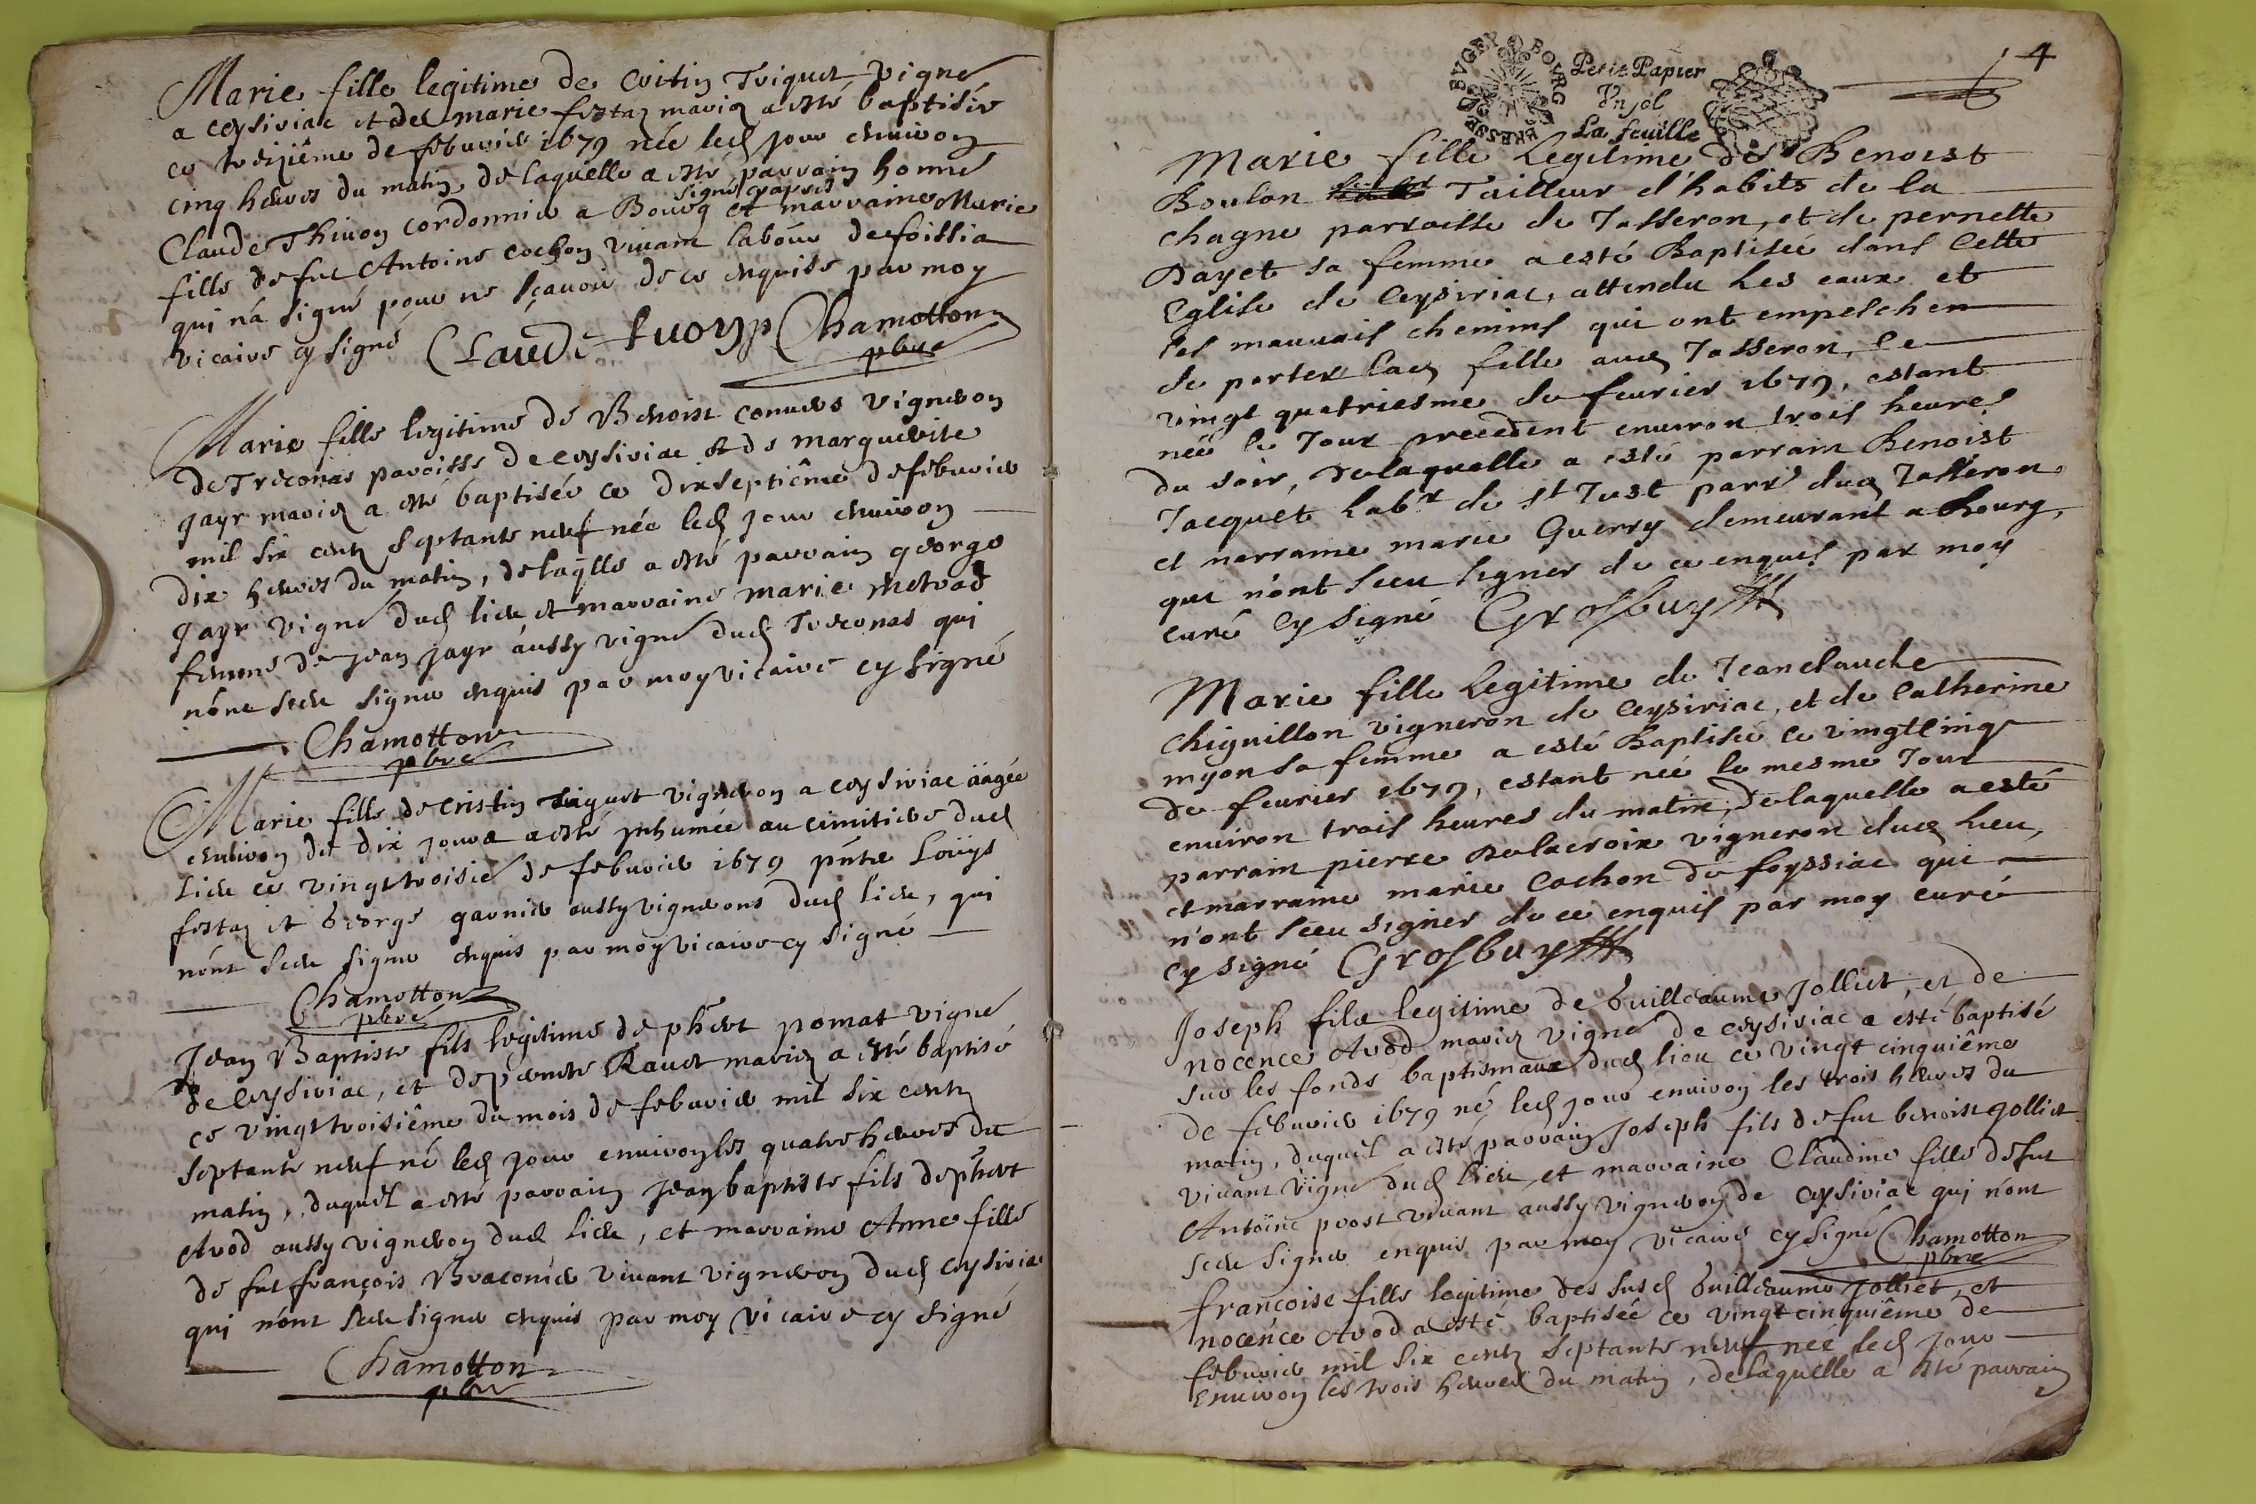 Marie fille legitime de Triquet vigne
a Ceysiriac et de marie festaz mariez a esté baptisée
ce treiziême de febvrier 1679 née led jour environ
cinq heures du matin, de laquelle a esté parrain honné
signé cyapres
Claude Thivon cordonnier a Bourg et marraine Marie
fille de fut Antoine cochon vivant labour de foissia
qui n'a signé pour ne sçavoir de ce enquise par moy
vicaire cy signé Claude Chamotton
pbre
Marie fille legitime de Benoist convers vigneron
de Treconas paroisse de ceysiriac et de marguerite
Jayr mariez a esté baptisée ce dixseptiême de febvrier
mil six centz septante neuf née led jour environ
dix heures du matin, de laqlle a esté parrain george
Jayr vigné dud lieu et marraine marie
femme de jean jayr aussy vigné dud Treconas qui
n'ont sceu signer enquis par moy vicaire cy signé
Chamotton
pbre
Marie fille de vigneron a ceysiriac äagée
environ de dix jours a esté inhumée au cimitiere dud
lieu ce vingttroisié de febvrier 1679 pnts Loüys
festaz et george garnier aussy vignerons dud lieu, qui
n'ont sceu signer enquis par moy vicaire cy signé
Chamotton
pbre
Jean Baptiste fils legitime de phert pomat vigné
de Ceysiriac, et de pernete Ravet mariez a esté baptisé
ce vingttroisiême du mois de febvrier mil six centz
septante neuf né led jour environ les quatre heures du
matin, duquel a esté parrain jean baptiste fils de phert
Avod aussy vigneron dud lieu, et marraine Anne fille
de fut françois Braconier vivant vigneron dud ceysiriac
qui n'ont sceu signer enquis par moy vicaire cy signé
Chamotton
pbre
BOURG BRESSE BUGEY
Petit Papier
Un sol
La feuille
4
Marie fille Legitime de Benoist
Boulon Tailleur d'habits de la
chagne parroisse de Jasseron, et de pernette
Dayet sa femme a esté Baptisée dans Cette
Eglise de Ceysiriac, attendu Les eaux et
les mauvais chemins qui ont empeschen
de porter lad fille aud Jasseron, le
vingt quatriesme de fevrier 1679, estant
née le Jour precedent environ trois heures
du soir, de laquelle a esté parrain Benoist
Jacquet Labr de st Just parr dud Jasseron
et marraine marie Guerry demeurant a bourg,
qui n'ont sceu signer de ce enquis par moy
curé Cy signé Grosbuy
Marie fille Legitime de Jeanclaude
chiquillon vigneron de Ceysiriac, et de Catherine
myon sa femme a esté Baptisée ce vingtcinq
de fevrier 1679, estant née le mesme Jour
environ trois heures du matin, de laquelle a esté
parrain pierre Delacroix vigneron dud lieu,
et marraine marie Cochon de foyssiac qui
n'ont sceu signer de ce enquis par moy curé
Cy signé Grosbuy
Joseph fils legitime de Guilleaume Jolliet, et de
nocence Avod mariez vigné de ceysiriac a esté baptisé
sur les fonds baptismaux dud lieu ce vingt cinquiême
de febvrier 1679 né led jour environ les trois heures du
matin, duquel a esté parrain Joseph fils de fut benoist Jolliet
vivant vigné dud lieu et marraine Claudine fille de fut
Antoine prost vivant aussy vigneron de ceysiriac qui n'ont
sceu signer enquis par moy vicaire cy signé Chamotton
pbre
françoise fille legitime des susd Guilleaume Jolliet, et
nocence Avod a esté baptisée ce vingt cinquiême de
febvrier mil six centz septante neuf née led jour
environ les trois heures du matin, de laquelle a esté parrain